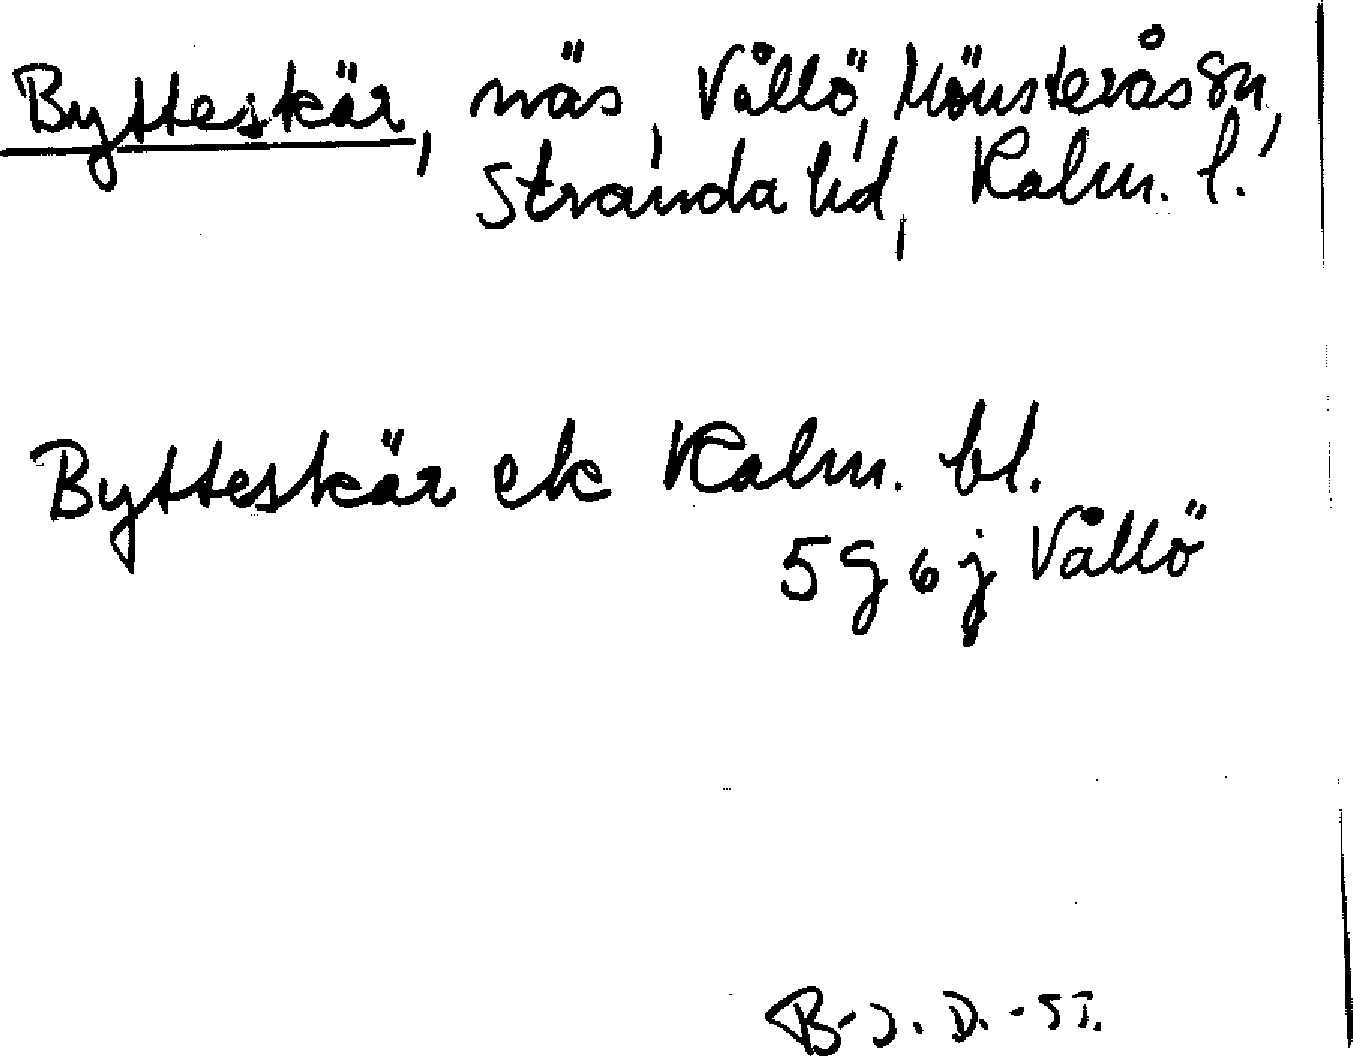 Bytteskär, näs, Vållö, Mönsterås sn,
Stranda hd, Kalm. l.
Bytteskär ek Kalm. bl.
5 g 6 j Vållö
B-J. D. -51.